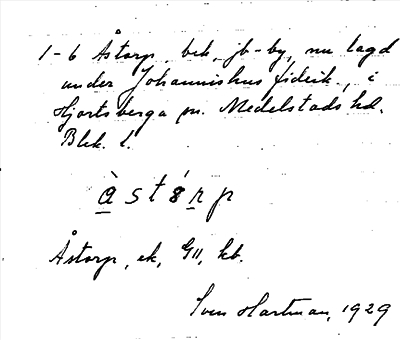 1-6 Åstorp, bek, jb-by, nu lagd
under Johannishus fideik., i
Hjortsberga sn. Medelstads hd.
Blek. l.
à st ó r p
Åstorp, ek, GII, kb.
Sven Hartman, 1929